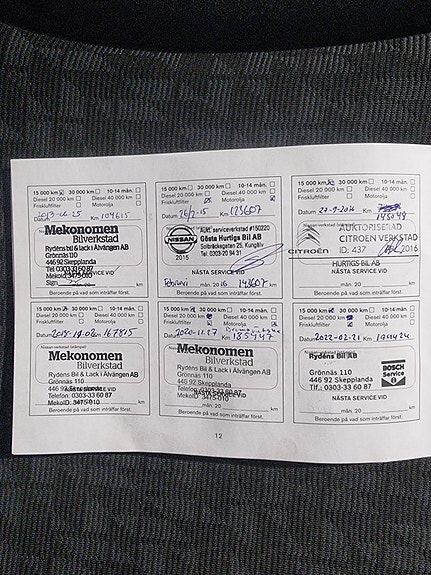 15 000 km 30 000 km 10-14 mån.
Diesel 20 000 km Diesel 40 000 km
Friskluftfilter Motorolja
Datum Km 104615
Mekonomen
Bilverkstad
Rydéns bil & lack i Älvängen AB
Grönnäs 110
446 92 Skepplanda
Tel 0303-33 60 87
NÄSTA SERVICE VID
Sign.
Beroende på vad som inträffar först.
15 000 km 30 000 km 10-14 mån.
Diesel 20 000 km Diesel 40 000 km
Friskluftfilter Motorolja
Datum Km 123607
NISSAN
2015
Aukt. serviceverkstad #150220
Gösta Hurtigs Bil AB
Solbräckegatan 25, Kungälv
Tel. 0303-20 94 31
NÄSTA SERVICE VID
Februari mån. 20 16 143607 km
Beroende på vad som inträffar först.
15 000 km 30 000 km 10-14 mån.
Diesel 20 000 km Diesel 40 000 km
Friskluftfilter Motorolja
Datum 27-9-2016 Km
145048
CITROËN
AUKTORISERAD
CITROËN VERKSTAD
ID: 437 2016
HURTIGS BIL AB
NÄSTA SERVICE VID
mån. 20 km
Beroende på vad som inträffar först.
15 000 km 30 000 km 10-14 mån.
Diesel 20 000 km Diesel 40 000 km
Friskluftfilter Motorolja
Datum Km 167815
Nissan-verkstad (stämpel)
Mekonomen
Bilverkstad
Rydéns Bil & Lack i Älvängen AB
Grönnäs 110
446 92 Skepplanda
NÄSTA SERVICE VID
Telefon: 0303-33 60 87
MekoID: 3475-010 km
Beroende på vad som inträffar först.
15 000 km 30 000 km 10-14 mån.
Diesel 20 000 km Diesel 40 000 km
Friskluftfilter Motorolja
Datum 2020-11-27 Km 185747
Mekonomen
Bilverkstad
Rydéns Bil & Lack i Älvängen AB
Grönnäs 110
446 92 Skepplanda
NÄSTA SERVICE VID
Telefon: 0303-33 60 87
MekoID: 3475-010 km
Beroende på vad som inträffar först.
15 000 km 30 000 km 10-14 mån.
Diesel 20 000 km Diesel 40 000 km
Friskluftfilter Motorolja
Datum 2022-02-21 Km
Nissan-verkstad (stämpel)
Rydéns Bil AB
Grönnäs 110
446 92 Skepplanda
Tlf.: 0303-33 60 87
BOSCH
Service
NÄSTA SERVICE VID
mån. 20 km
Beroende på vad som inträffar först.
12